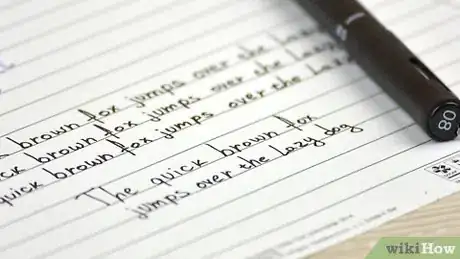 brown fox jumps over the
brown fox jumps over the
quick brown fox jumps over the
The quick brown fox
jumps over the lazy dog
80
wikiHow